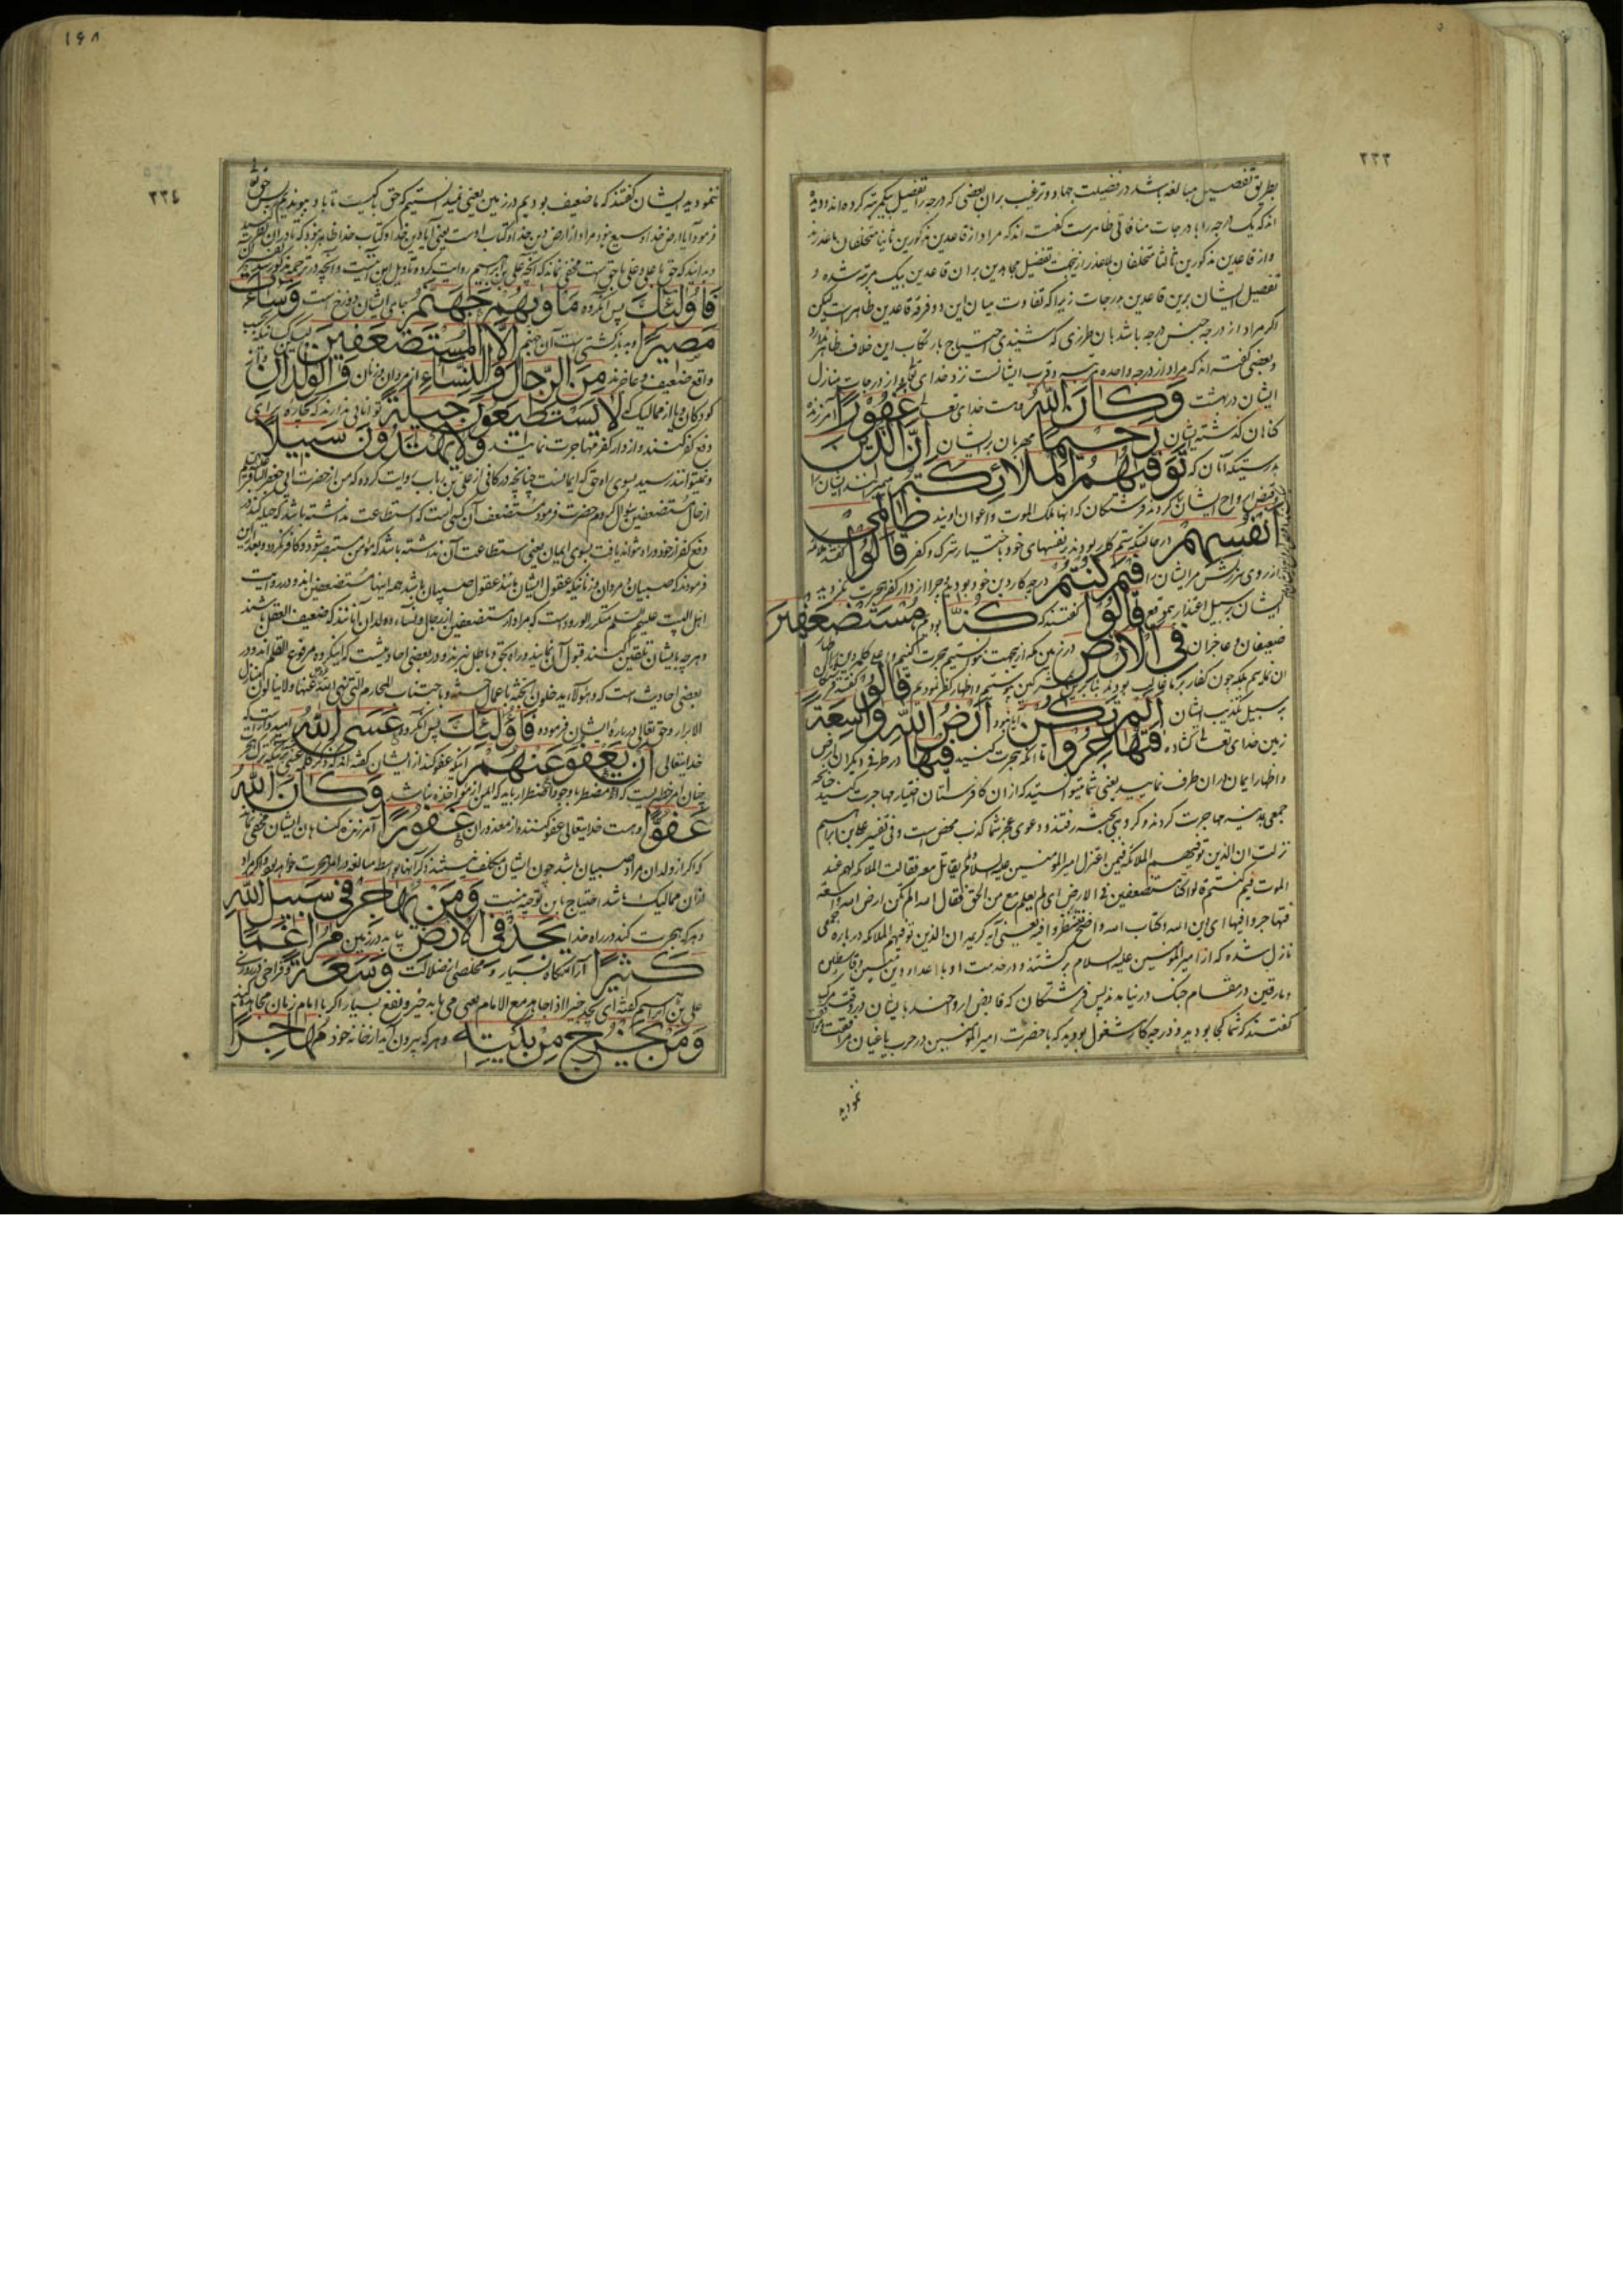 ٢٣٣
بطریق تفصیل مبالغه باشد در فضیلت جهاد و ترغیب بران بعضی که درجه را تفضیل بیکمرتبه کرده‌اند
اند که یک درجه را با درجات منافاتی ظاهرست گفته اند که مراد از قاعدین مذکورین ثانیا متخلفان
و از قاعدین مذکورین ثالثا متخلفان بلاعذر ازینجهت تفضیل مجاهدین بران قاعدین بیک مرتبه شده و
تفصیل ایشان برین قاعدین بدرجات زیرا که تفاوت میان این دو فرقه قاعدین ظاهر است لیکن
اکر مراد از درجه جنس درجه باشد بان طرزی که شنیدی احتیاج بارتکاب این خلاف ظاهر
و بعضی گفته اند که مراد از درجه واحده مرتبه و قرب ایشانست نزد خدای و از درجات منازل
ایشان در بهشت وَكَانَ اللّٰهُ و هست خدای غَفُورًا آمرزنده
کناهان گذشته ایشان رَحِيمًا مهربان بر ایشان إِنَّ الَّذِينَ
بدرستیکه آنان که تَوَفّٰيهُمُ الْمَلَائِكَةُ
و قبض ارواح ایشان کردند فرشتکان که انها ملک الموت و اعوان اویند ظَالِمِي
أَنْفُسِهِمْ در حالتیکه ستم کار بودند بر نفسهای خود باختیار ترک و کفر قَالُوا
از روی سرزنش مر ایشان را فِيمَ كُنْتُمْ در چه کار دین خود بودید چرا از دار کفر هجرت نکردید
ایشان بر سبیل اعتذار قَالُوا گفتند که كُنَّا بودیم مُسْتَضْعَفِينَ
ضعیفان و عاجزان فِي الْأَرْضِ در زمین مکه ازینجهت نتوانستیم هجرت کنیم
چون کفار بر ما غالب بودند و اظهار کفر نمودیم قَالُوا
بر سبیل تکذیب ایشان أَلَمْ تَكُنْ ایا نبود أَرْضُ اللّٰهِ وَاسِعَةً
زمین خدای کشاده فَتُهَاجِرُوا تا انکه هجرت کنید فِيهَا در طرفی دیکر از ان ارض
و اظهار ایمان دران طرف نمایید یعنی شما میتوانستید که از ان کافرستان اختیار مهاجرت کنید چنانچه
جمعی بمدینه مهاجرت کردند و کروهی بحبشه رفتند و دعوی عجز شما کذب محض است و فی تفسیر علی بن ابراهیم
نزلت ان الذین توفیهم الملائکة فیمن اعتزل امیر المؤمنین علیه السلام و لم یقاتل معه فقالت الملائکة لهم عند
الموت فیم کنتم قالوا کنا مستضعفین فی الارض ای لم یعلم مع من الحق فقال الله الم تکن ارض الله واسعة
فتهاجروا فیها ای دین الله و کتاب الله واضح فتنظروا فیه یعنی آیه کریمه ان الذین توفیهم الملائکة درباره جمعی
نازل شده که از امیر المؤمنین علیه السلام برکشتند و در خدمت او با اعداء دین
و مارقین در مقام جنک در نیامدند پس فرشتکان که قابض ارواحند بایشان در وقت مرک
گفتند که شما کجا بودید و در چه کار مشغول بودید که با حضرت امیر المؤمنین در حرب یاغیان مرافقت
نمودید
١٦٨
٢٣٤
نمودید ایشان گفتند که ما ضعیف بودیم در زمین یعنی نمیدانستیم که حق با کیست تا باو پیوندیم
فرمود آیا ارض خدا وسیع نبود مراد از ارض دین خدا و کتاب اوست یعنی آیا دین خدا و کتاب خدا ظاهر نبود که تا دران
و بدانید که حق با علی و علی با حق است مخفی نماند که آنچه علی بن ابراهیم روایت کرده تاویل این آیتست و آنچه در ترجمه مذکور
فَأُولٰئِكَ پس آنکروه مَأْوٰيهُمْ جَهَنَّمُ جای ایشان دوزخ است وَسَاءَتْ
مَصِيرًا و بد بازکشتی است آن جهنم إِلَّا الْمُسْتَضْعَفِينَ
واقع ضعیف و عاجزند مِنَ الرِّجَالِ وَالنِّسَاءِ از مردان و زنان وَالْوِلْدَانِ و از
کودکان و یا از ممالیک که لَا يَسْتَطِيعُونَ حِيلَةً توانایی ندارند که چاره برای
دفع کفر کنند و از دار کفر مهاجرت نمایند وَلَا يَهْتَدُونَ سَبِيلًا
و نمیتوانند رسید بسوی راه حق که ایمانست چنانچه در کافی از علی بن رباب روایت کرده که من از حضرت
از حال مستضعفین سؤال کردم حضرت فرمود مستضعف آن کسی است که استطاعت نداشته باشد که حیله کند در
دفع کفر از خود و راه نتواند یافت بسوی ایمان یعنی استطاعت آن نداشته باشد که مؤمن شود و کافر نکردد
فرمودند که صبیان و مردان و زنانیکه عقول ایشان مانند عقول صبیان باشد همه اینها مستضعفین اند و در روایت
اهل البیت علیهم السلم متکرر الورودست که مراد از مستضعفین از رجال و نساء و ولدان آنانند که ضعیف العقل باشند
و هر چه بدیشان تلقین کنند قبول آن نمایند و راه بحق و باطل نبرند و در بعضی احادیث است که اینکروه مرفوع القلم اند و در
بعضی احادیث است که و هؤلاء یدخلون الجنة باعمال حسنة و باجتناب المحارم التی نهی الله عنها و لا ینالون منازل
الابرار و حق تعالی درباره ایشان فرموده فَأُولٰئِكَ پس آنکروه عَسَى اللّٰهُ امید است که
خدایتعالی أَنْ يَعْفُوَ عَنْهُمْ اینکه عفو کند از ایشان گفته اند که ذکر کلمه عسی
چنان امر خطیریست که مضطر با وجود اضطرار باید که ایمن از مؤاخذه نباشد وَكَانَ اللّٰهُ
عَفُوًّا و هست خدایتعالی عفو کننده از معذوران غَفُورًا آمرزنده کناهان ایشان مخفی نماند
که اکر از ولدان مراد صبیان باشد چون ایشان مکلف نیستند ذکر آنها بواسطه مبالغه در امر هجرت خواهد بود و اکر مراد
ازان ممالیک باشد احتیاج باین توجیه نیست وَمَنْ يُهَاجِرْ فِي سَبِيلِ اللّٰهِ
و هر که هجرت کند در راه خدا يَجِدْ فِي الْأَرْضِ یابد در زمین مُرَاغَمًا
كَثِيرًا آرامگاه بسیار و مخلصی از ضلالت وَسَعَةً و فراخی در روزی
علی بن ابراهیم گفته ای یجد خیرا اذا جاهد مع الامام یعنی می یابد خیر و نفع بسیار اکر با امام زمان مجاهده کند
وَمَنْ يَخْرُجْ مِنْ بَيْتِهِ و هر که بیرون آید از خانه خود مُهَاجِرًا